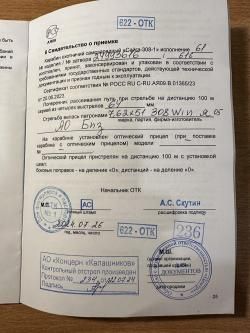 622 - ОТК
8 Свидетельство о приемке
Карабин охотничий самозарядный «Сайга-308-1» исполнение 61
№ изделия / № затвора
изготовлен, принят, законсервирован и упакован в соответствии с
требованиями государственных стандартов, действующей технической
документации и признан годным к эксплуатации.
Сертификат соответствия № РОСС RU C-RU.АЯ09.В.01365/23
от 20.06.2023.
Поперечник рассеивания пуль при стрельбе на дистанцию 100 м
серией из четырех выстрелов мм.
Стрельба велась патронами 7,62х51 308 Win
марка, партия, фирма-изготовитель
АО БПЗ
На карабине установлен оптический прицел (при поставке
карабина с оптическим прицелом) модели
№
Оптический прицел пристрелян на дистанцию 100 м с установкой
шкал:
боковых поправок - на деление «0»; дистанций - на деление «0».
Начальник ОТК
М.П.
АС
А.С. Скутин
расшифровка подписи
2024.07.26
год, месяц, число
622 - ОТК
236
АО «Концерн «Калашников»
Контрольный отстрел произведен
Протокол №
Подпись
ДОКУМЕНТОВ
дата продажи
25